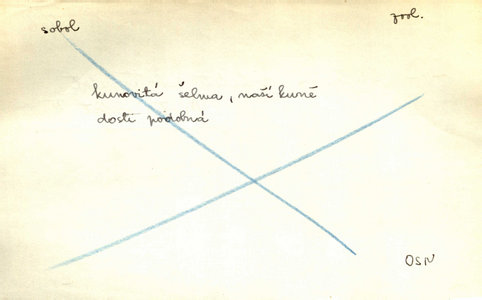 sobol
zool.
kunovitá šelma, naší kuně
dosti podobná
OSN